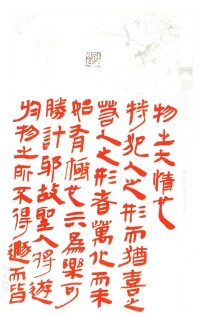 物之大情也
特犯人之形而猶喜之
若人之形者萬化而未
始有極也亓為樂可
勝計邪故聖人將遊
於物之所不得遯而皆